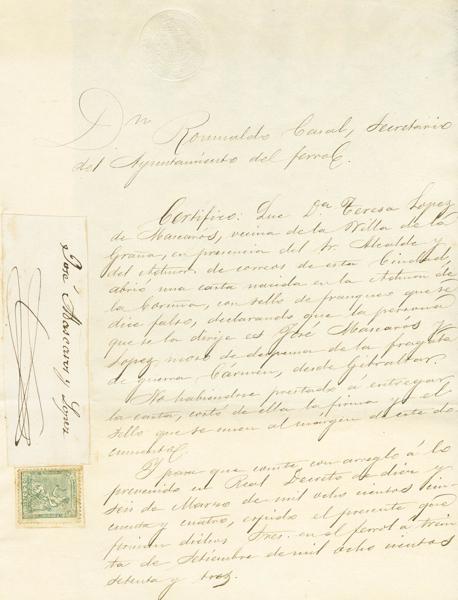 Dn Romualdo Casal, Secretario
del Ayuntamiento del ferrol.
Certifico: Que Da Teresa Lopez
de Mascarós, vecina de la Villa de la
Graña, en presencia del Sr Alcalde y
del de correos de esta Ciudad,
abrió una carta nacida en la
la Coruña, con sello de franqueo que se
dice falso, declarando que la persona
que se la dirije es José Mascaros y
Lopez, mozo de despensa de la fragata
de guerra Cármen, desde Gibraltar.
No habiéndose prestado a entregar
la carta, cortó de ella la firma y el
sello que se unen al margen de este do
cumento.
Y para que conste, con arreglo á lo
prevenido en Real Decreto de diez y
seis de Marzo de mil ocho cientos cin
cuenta y cuatro, expido el presente que
firman dichos Sres. en el ferrol a trein
ta de Setiembre de mil ocho cientos
setenta y tres.
José Mascaros y Lopez